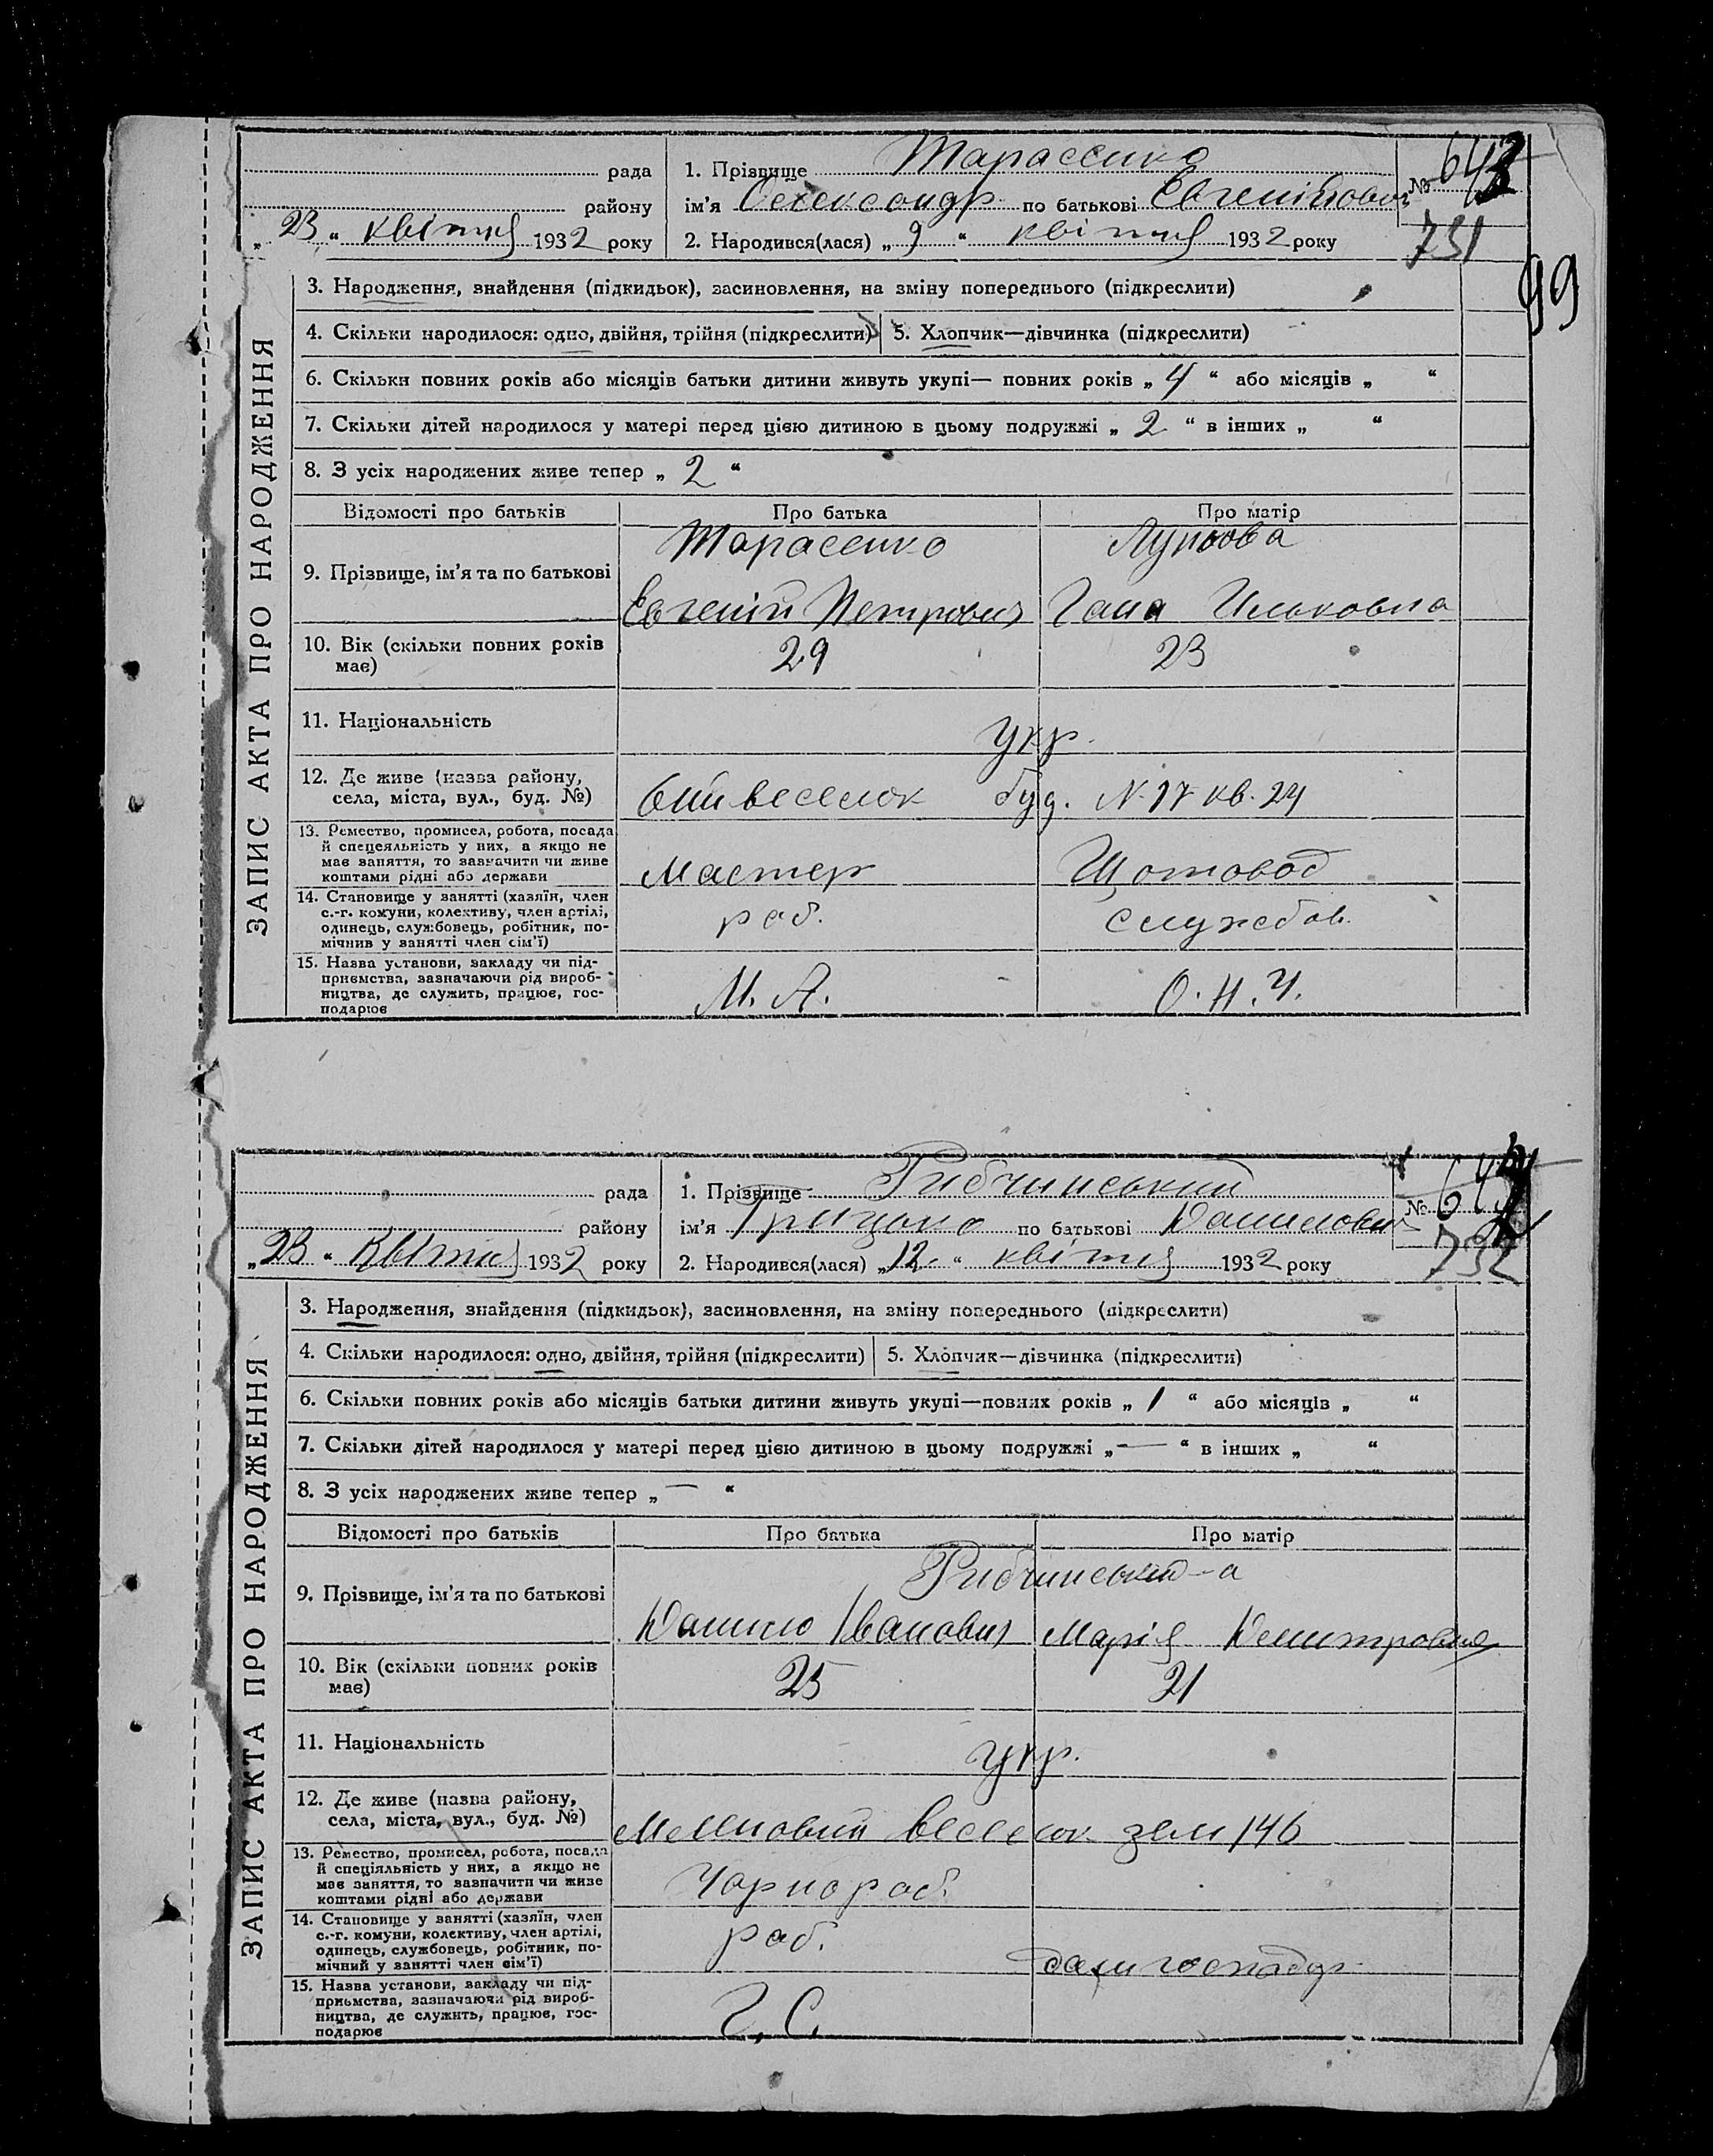 ЗАПИС АКТА ПРО НАРОДЖЕННЯ
рада
району
„ 23 “ квітня 1932 року
1. Прізвище Тарасенко
ім'я Олександр по батькові Євгенійович
2. Народився(лася) „ 9 “ квітня 1932 року
№
731
99
3. Народження, знайдення (підкидьок), засиновлення, на зміну попереднього (підкреслити)
4. Скільки народилося: одно, двійня, трійня (підкреслити) 5. Хлопчик—дівчинка (підкреслити)
6. Скільки повних років або місяців батьки дитини живуть укупі— повних років „ 4 “ або місяців „ “
7. Скільки дітей народилося у матері перед цією дитиною в цьому подружжі „ 2 “ в інших „ “
8. З усіх народжених живе тепер „ 2 “
Відомості про батьків Про батька Про матір
9. Прізвище, ім'я та по батькові
Тарасенко
Євгеній Петрович Гана Ильковна
10. Вік (скільки повних років має) 29 23
11. Національність укр.
12. Де живе (назва району, села, міста, вул., буд. №) буд. N. 17 кв. 24
13. Ремество, промисел, робота, посада
й спецеяльність у них, а якщо не
має заняття, то зазначити чи живе
коштами рідні або держави
Мастер Щотовод
14. Становище у занятті (хазяїн, член
с.-г. комуни, колективу, член артілі,
одинець, службовець, робітник, по-
мічнив у занятті член сім'ї)
роб. службов.
15. Назва установи, закладу чи під-
приємства, зазначаючи рід вироб-
ництва, де служить, працює, гос-
подарює
М. А.
ЗАПИС АКТА ПРО НАРОДЖЕННЯ
рада
району
„ 23 “ Квітня 1932 року
1. Прізвище Рибчинський
ім'я Грицько по батькові Данилович
2. Народився(лася) „ 12. “ квітня 1932 року
№
732
3. Народження, знайдення (підкидьок), засиновлення, на зміну попереднього (підкреслити)
4. Скільки народилося: одно, двійня, трійня (підкреслити) 5. Хлопчик—дівчинка (підкреслити)
6. Скільки повних років або місяців батьки дитини живуть укупі—повних років „ 1 “ або місяців „ “
7. Скільки дітей народилося у матері перед цією дитиною в цьому подружжі „ — “ в інших „ “
8. З усіх народжених живе тепер „ — “
Відомості про батьків Про батька Про матір
9. Прізвище, ім'я та по батькові
Рибчинський-а
Данило Іванович Марія Демитровна
10. Вік (скільки повних років має) 25 21
11. Національність укр.
12. Де живе (назва району, села, міста, вул., буд. №) зем 146
13. Ремество, промисел, робота, посада
й спеціяльність у них, а якщо не
має заняття, то зазначити чи живе
коштами рідні або держави
Чорнороб.
14. Становище у занятті (хазяїн, член
с.-г. комуни, колективу, член артілі,
одинець, службовець, робітник, по-
мічний у занятті член сім'ї)
роб. домгосподар
15. Назва установи, закладу чи під-
приємства, зазначаючи рід вироб-
ництва, де служить, працює, гос-
подарює
Г. С.